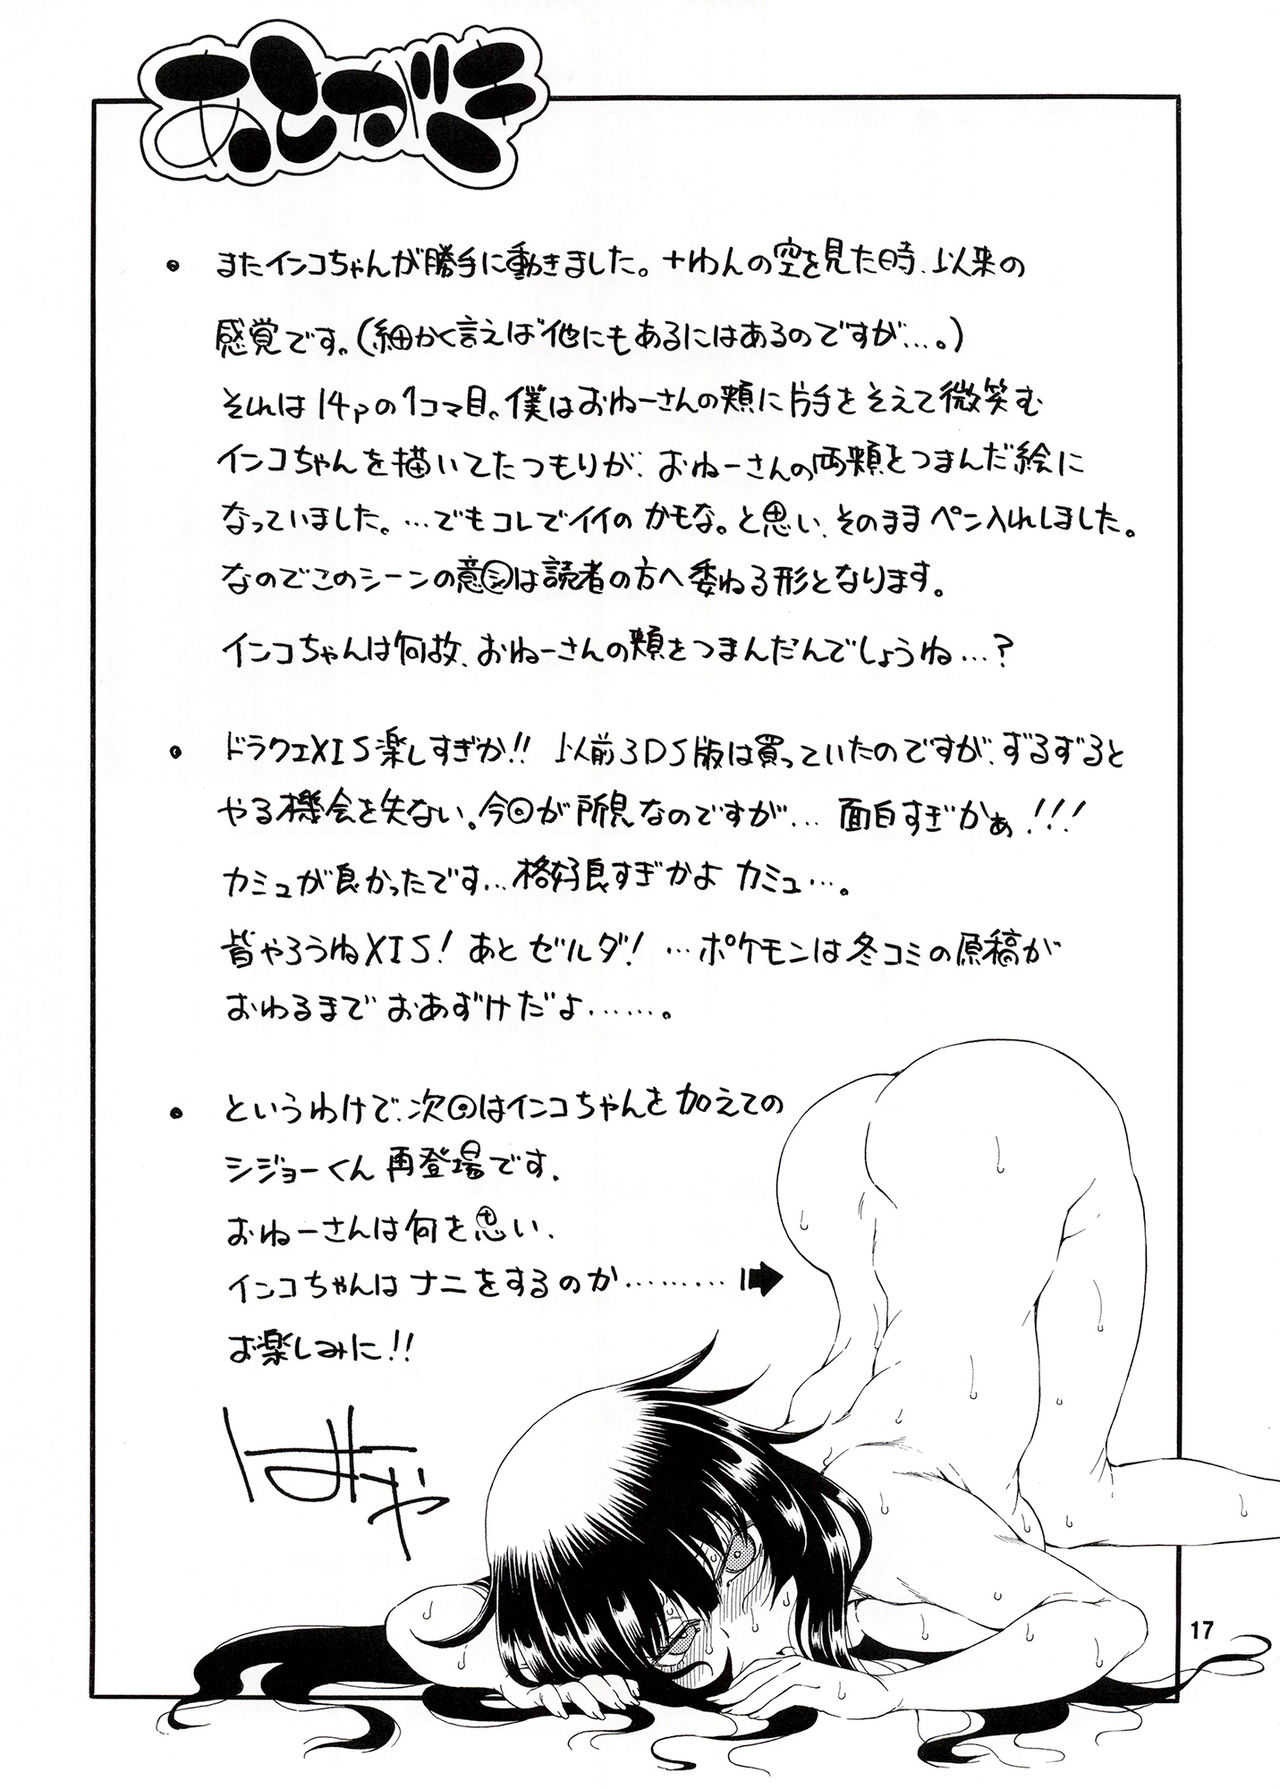 あとがき
・またインコちゃんが勝手に動きました。十わんの空を見た時、以来の
感覚です。(細かく言えば他にもあるにはあるのですが…。)
それは14pの1コマ目。僕はおねーさんの頬に片手をそえて微笑む
インコちゃんを描いてたつもりが、おねーさんの両頬をつまんだ絵に
なっていました。…でもコレでイイのかもな。と思い、そのままペン入れしました。
なのでこのシーンの意図は読者の方へ委ねる形となります。
インコちゃんは何故、おねーさんの頬をつまんだんでしょうね…?
・ドラクエXIS楽しすぎか!! 以前3DS版は買っていたのですが、ずるずると
やる機会を失ない。今回が所見なのですが… 面白すぎかぁ!!!
カミュが良かったです…格好良すぎかよカミュ…。
皆やろうねXIS!あとゼルダ!…ポケモンは冬コミの原稿が
おわるまでおあずけだよ……。
・というわけで、次回はインコちゃんを加えての
シジョーくん再登場です。
おねーさんは何を思い、
インコちゃんはナニをするのか………
お楽しみに!!
17